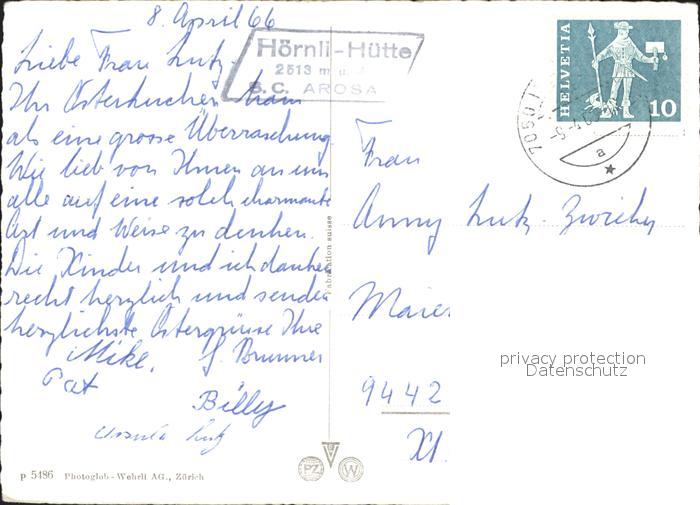 8. April 66
Liebe Frau Lutz.
Ihr Osterkuchen kam
als eine grosse Überraschung.
Wie lieb von Ihnen an uns
alle auf eine solch charmante
Art und Weise zu denken.
Die Kinder und ich danken
recht herzlich und senden
herzlichste Ostergrüsse Ihre
Mike. S. Brunner
Pat
Billy
Ursula Lutz
Hörnli-Hütte
2513 m
S.C. AROSA
HELVETIA
10
7050
a
Fabrikation suisse
Frau
Anny Lutz-Zwicky
Maier
9442
privacy protection
Datenschutz
p 5486 Photoglob-Wehrli AG., Zürich
PZ W